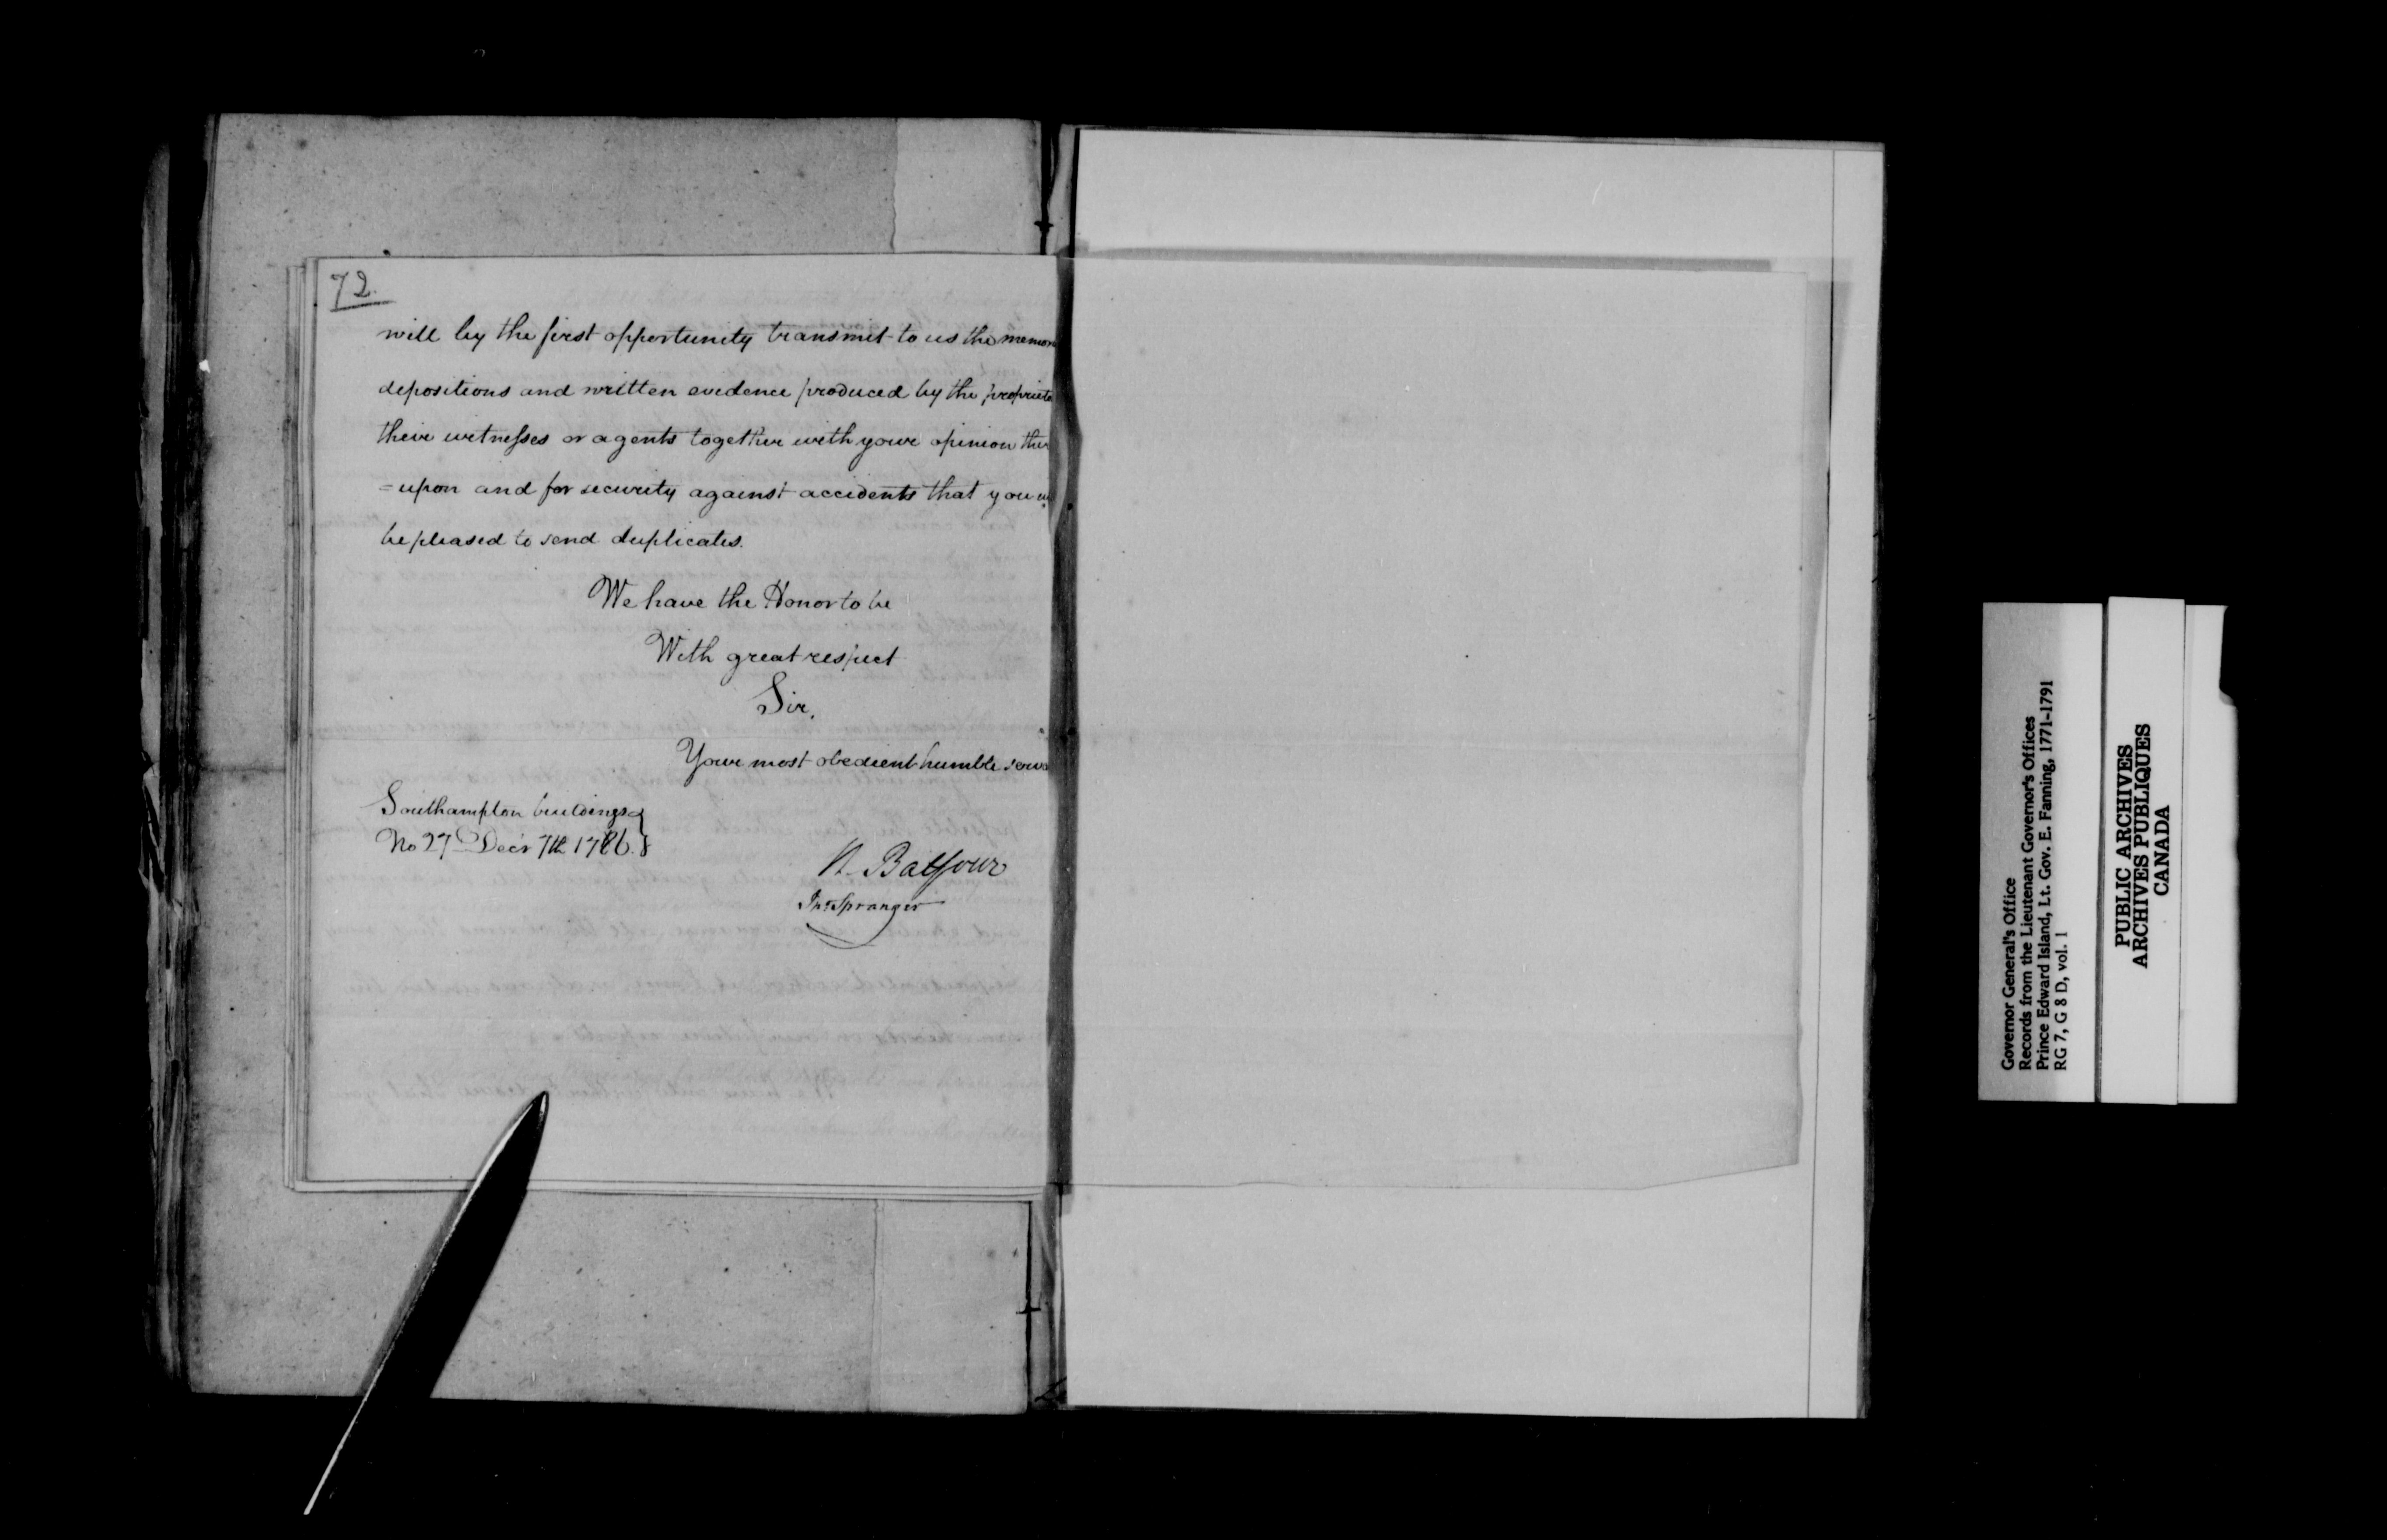 72
will by the first opportunity transmit to us the memor
depositions and written evidence produced by the propriet
their witnesses or agents together with your opinion ther
=upon and for security against accidents that you
be pleased to send duplicates.
We have the Honor to be
With great respect
Sir,
Your most obedient humble serva
Southampton buildings
No 27 Decr 7th 1786.
N. Balfour
Jno Spranger
Governor General's Office
Records from the Lieutenant Governor's Offices
Prince Edward Island, Lt. Gov. E. Fanning, 1771-1791
RG 7, G 8 D, vol. 1
PUBLIC ARCHIVES
ARCHIVES PUBLIQUES
CANADA